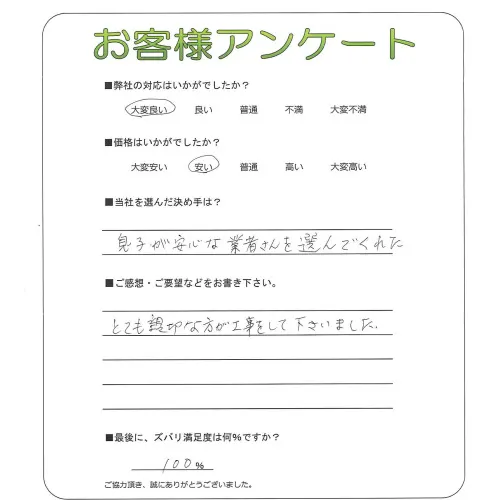 お客様アンケート
■弊社の対応はいかがでしたか？
大変良い 良い 普通 不満 大変不満
■価格はいかがでしたか？
大変安い 安い 普通 高い 大変高い
■当社を選んだ決め手は？
息子が安心な業者さんを選んでくれた
■ご感想・ご要望などをお書き下さい。
とても親切な方が工事をして下さいました。
■最後に、ズバリ満足度は何％ですか？
100％
ご協力頂き、誠にありがとうございました。